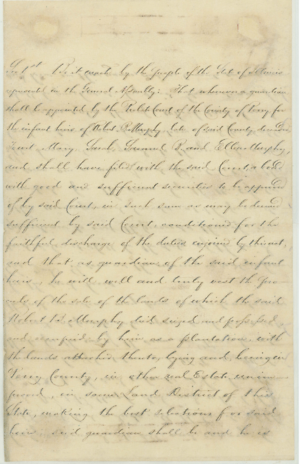 Sec 1st Be it enacted by the people of the State of Illinois
represented in the General Assembly: That whenever a guardian
shall be appointed by the Probate Court of the County of Perry for
the infant heirs of Robert Murphy, late of said County, deceased
Mary Sarah Samuel & Murphy
and shall have filed with the said Court a bond
with good and sufficient securities to be approved
of by said Court, in such sum as may be deemed
sufficient by said Court conditioned for the
faithful discharge of the duties enjoined by them,
and that as guardian of the said infant
heirs he will well and truly vest the
of the sale of the lands of which the said
Robert Murphy died seized and possessed
and occupied by him as a plantation with
the lands attached thereto, lying and being in
Perry County, in other real Estate
in some Land District of this
State, making the best selections for said
heirs said guardian shall be and he is